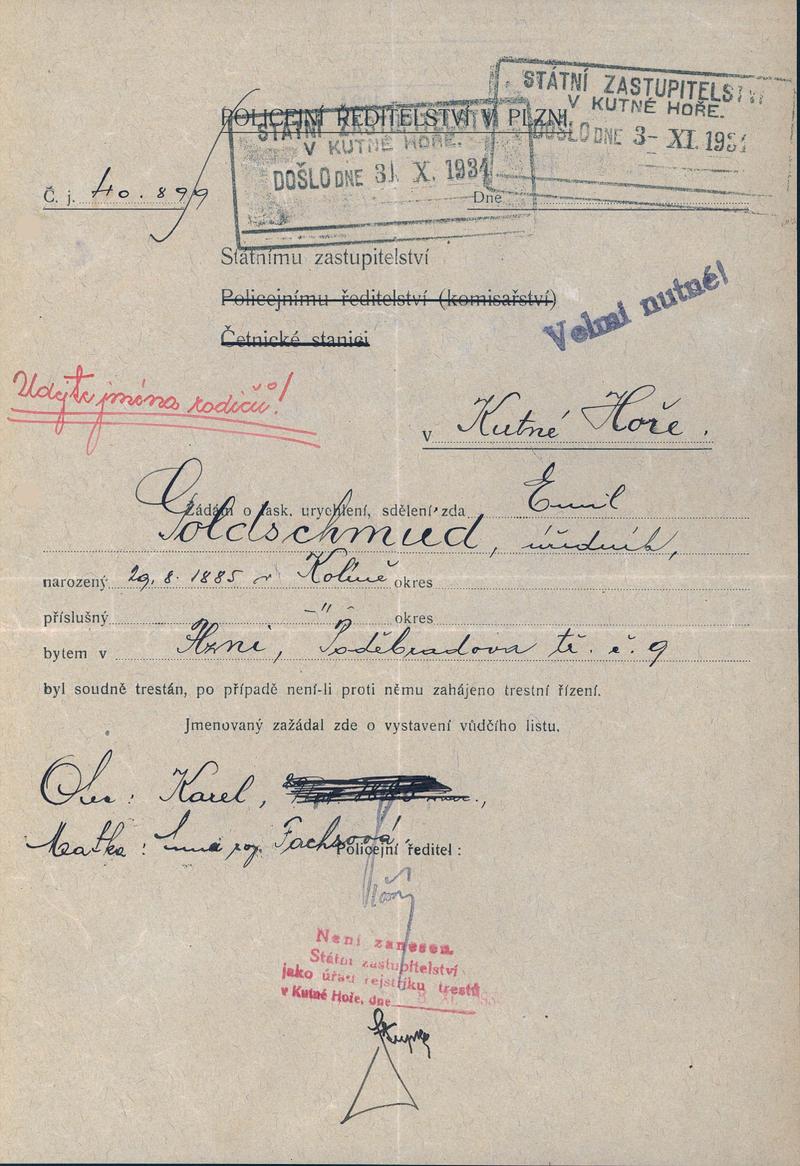 POLICEJNÍ ŘEDITELSTVÍ V PLZNI.
STÁTNÍ ZASTUPITELSTVÍ
V KUTNÉ HOŘE.
DOŠLO DNE 3- XI. 1934
STÁTNÍ ZASTUPITELSTVÍ
V KUTNÉ HOŘE.
DOŠLO DNE 31. X. 1934
Č. j. 40.899 Dne
Státnímu zastupitelství
Policejnímu ředitelství (komisařství)
Četnické stanici
Velmi nutné!
Udejte jména rodičů!
v Kutné Hoře.
Žádám o lask. urychlení, sdělení, zda Emil
Goldschmied, úředník,
narozený 29.8.1885 v Kolíně okres
příslušný -"- okres
bytem v Plzni, Poděbradova tř. č. 9
byl soudně trestán, po případě není-li proti němu zahájeno trestní řízení.
Jmenovaný zažádal zde o vystavení vůdčího listu.
Otec: Karel,
Matka: roz. Fachsová.
Policejní ředitel:
Není zanesen.
Státní zastupitelství
jako úřad rejstříku trestů
v Kutné Hoře, dne